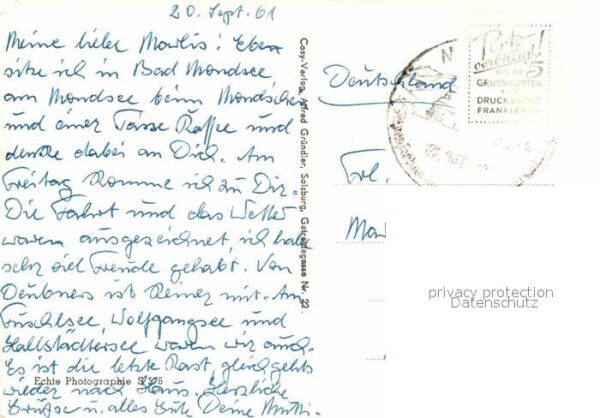 20. Sept. 61
Meine liebe Marlis! Eben
sitze ich in Bad Mondsee
am Mondsee beim Mondschein
und einer Tasse Kaffee und
denke dabei an Dich. Am
Freitag komme ich zu Dir.
Die Fahrt und das Wetter
waren ausgezeichnet, ich habe
sehr viel Freude gehabt. Von
Deubners ist keiner mit. Am
Fuschlsee, Wolfgangsee und
Hallstädtersee waren wir auch.
Es ist die letzte Rast, gleich gehts
wieder nach Haus. Herzliche
Grüße u. alles Gute Deine Mutti.
Echte Photographie S 375
Cosy-Verlag, Alfred Gründler, Salzburg, Getreidegasse Nr. 22.
Deutschland
Porto
verbilligt!
BIS ZU 5
GRUSSWORTEN
ALS
DRUCKSACHE
FRANKIEREN
Frl.
Mar
privacy protection
Datenschutz